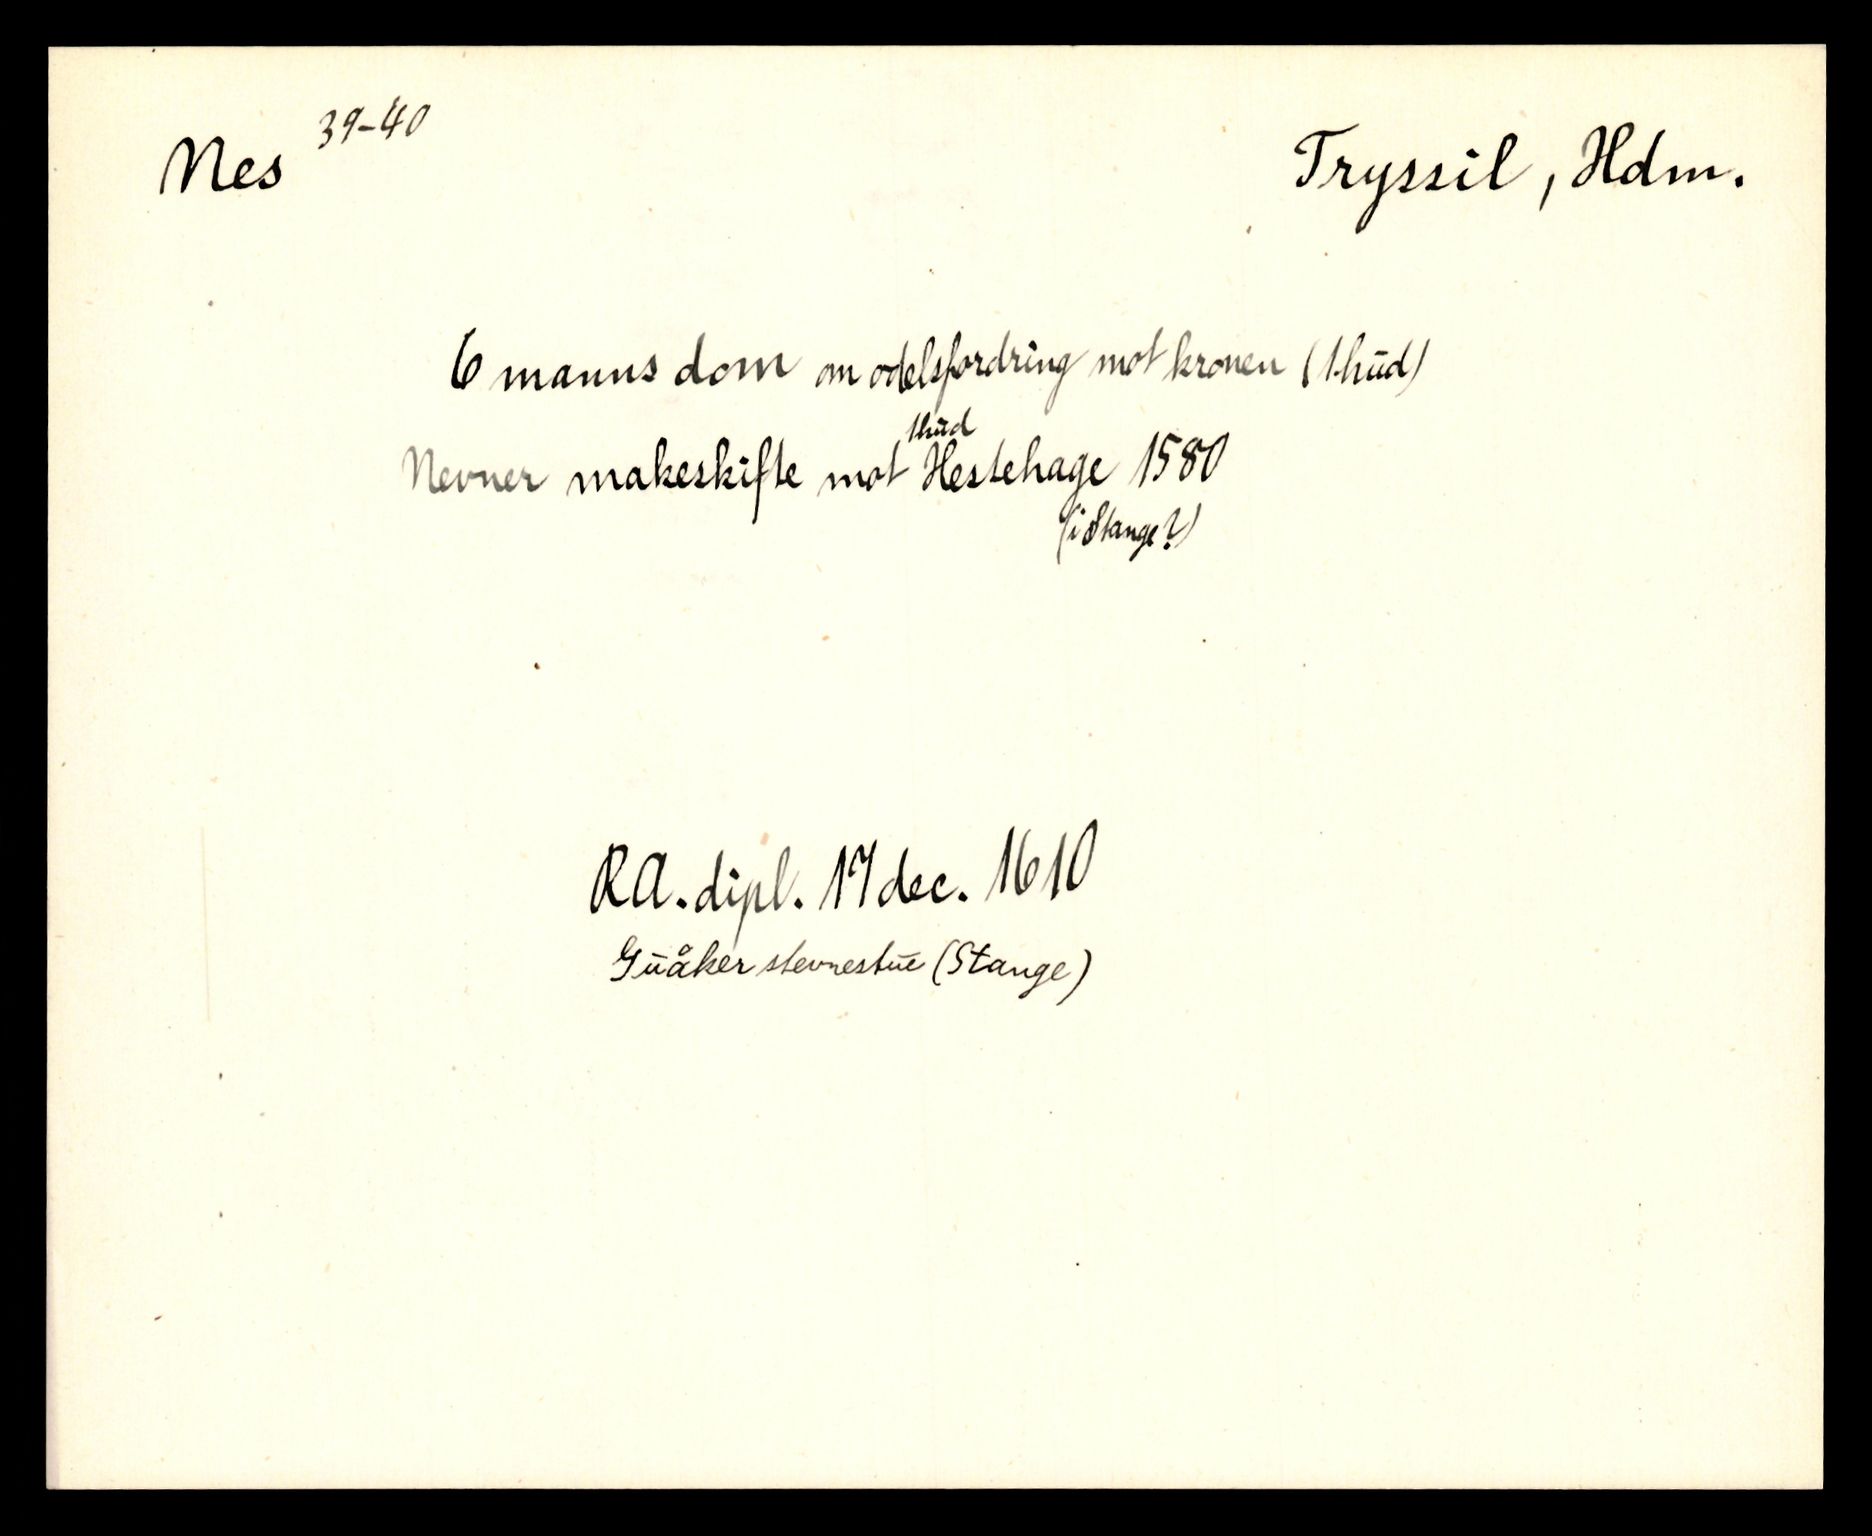 Nes 39-40 Tryssil, Hdm.
6 manns dom om odelsfordring mot kronen (1 hud)
1 hud
Nevner makeskifte mot Hestehage 1580
(i Stange?)
RA. dipl. 17 dec. 1610
Guåker stevnestue (Stange)